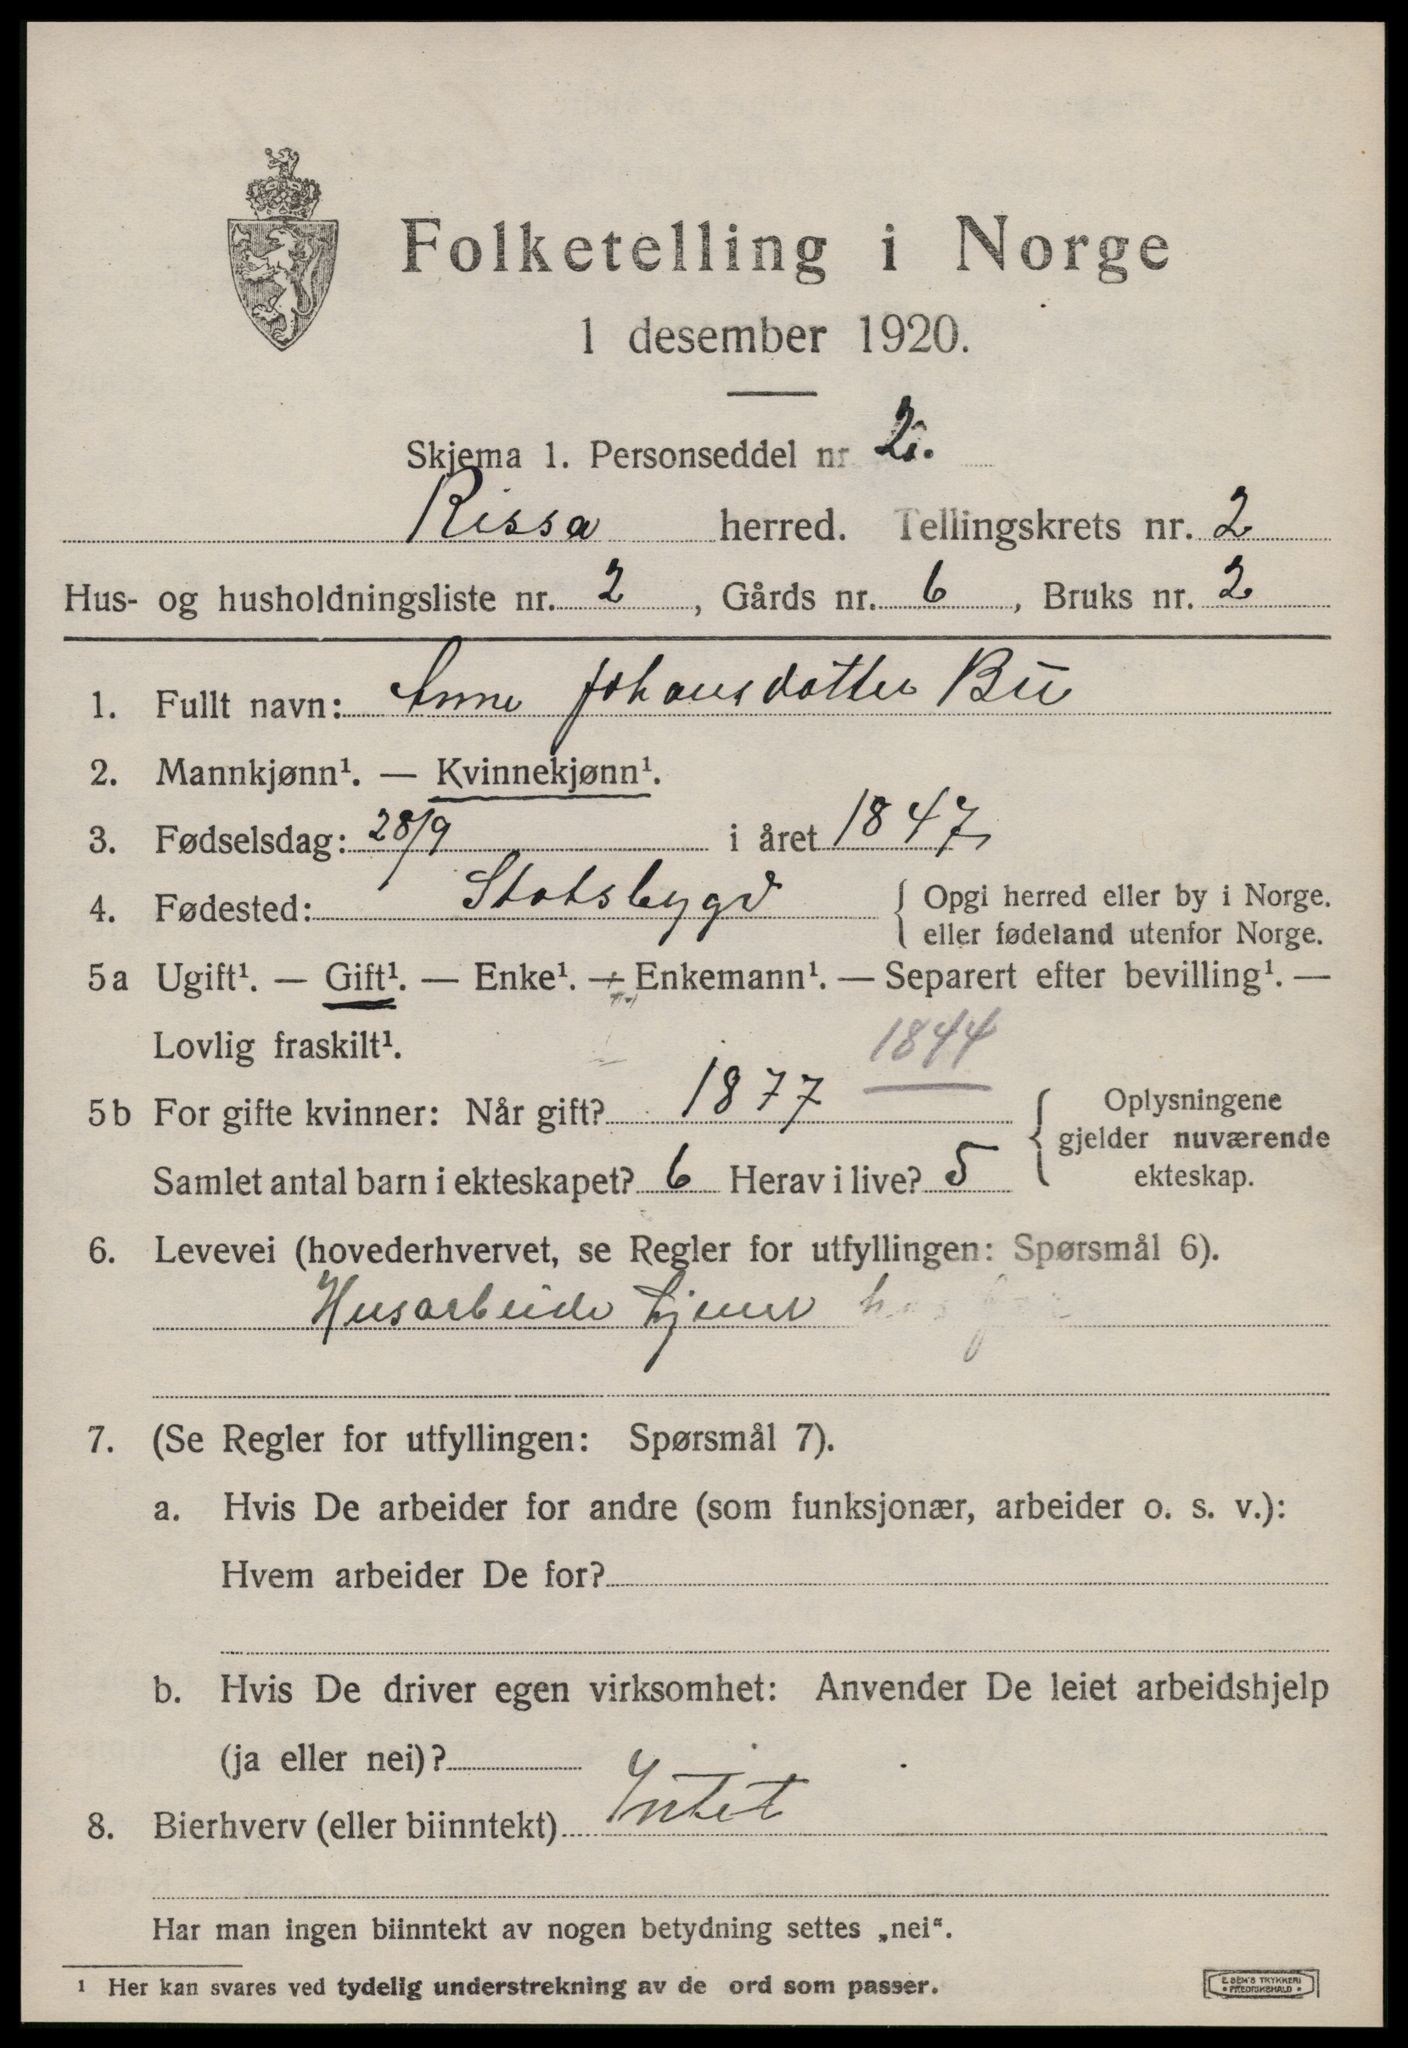 Folketelling i Norge
1 desember 1920.
Skjema 1. Personseddel nr 2.
Rissa herred. Tellingskrets nr. 2
Hus- og husholdningsliste nr. 2, Gårds nr. 6, Bruks nr. 2
1. Fullt navn: Anne Johansdatter Bü
2. Mannkjønn¹. — Kvinnekjønn¹.
3. Fødselsdag: 28/9 i året 1847
4. Fødested: Statsbygd { Opgi herred eller by i Norge.
eller fødeland utenfor Norge.
5a Ugift¹. — Gift¹. — Enke¹. — Enkemann¹. — Separert efter bevilling¹. —
Lovlig fraskilt¹.
1844
5b For gifte kvinner: Når gift? 1877 { Oplysningene
gjelder nuværende
Samlet antal barn i ekteskapet? 6 Herav i live? 5 ekteskap.
6. Levevei (hovederhvervet, se Regler for utfyllingen: Spørsmål 6).
Husarbeide hjemme hos
7. (Se Regler for utfyllingen: Spørsmål 7).
a. Hvis De arbeider for andre (som funksjonær, arbeider o. s. v.):
Hvem arbeider De for?
b. Hvis De driver egen virksomhet: Anvender De leiet arbeidshjelp
(ja eller nei)?
8. Bierhverv (eller biinntekt) Intet
Har man ingen biinntekt av nogen betydning settes „nei“.
¹ Her kan svares ved tydelig understrekning av de ord som passer.
E. SEM'S TRYKKERI
* FREDRIKSHALD *